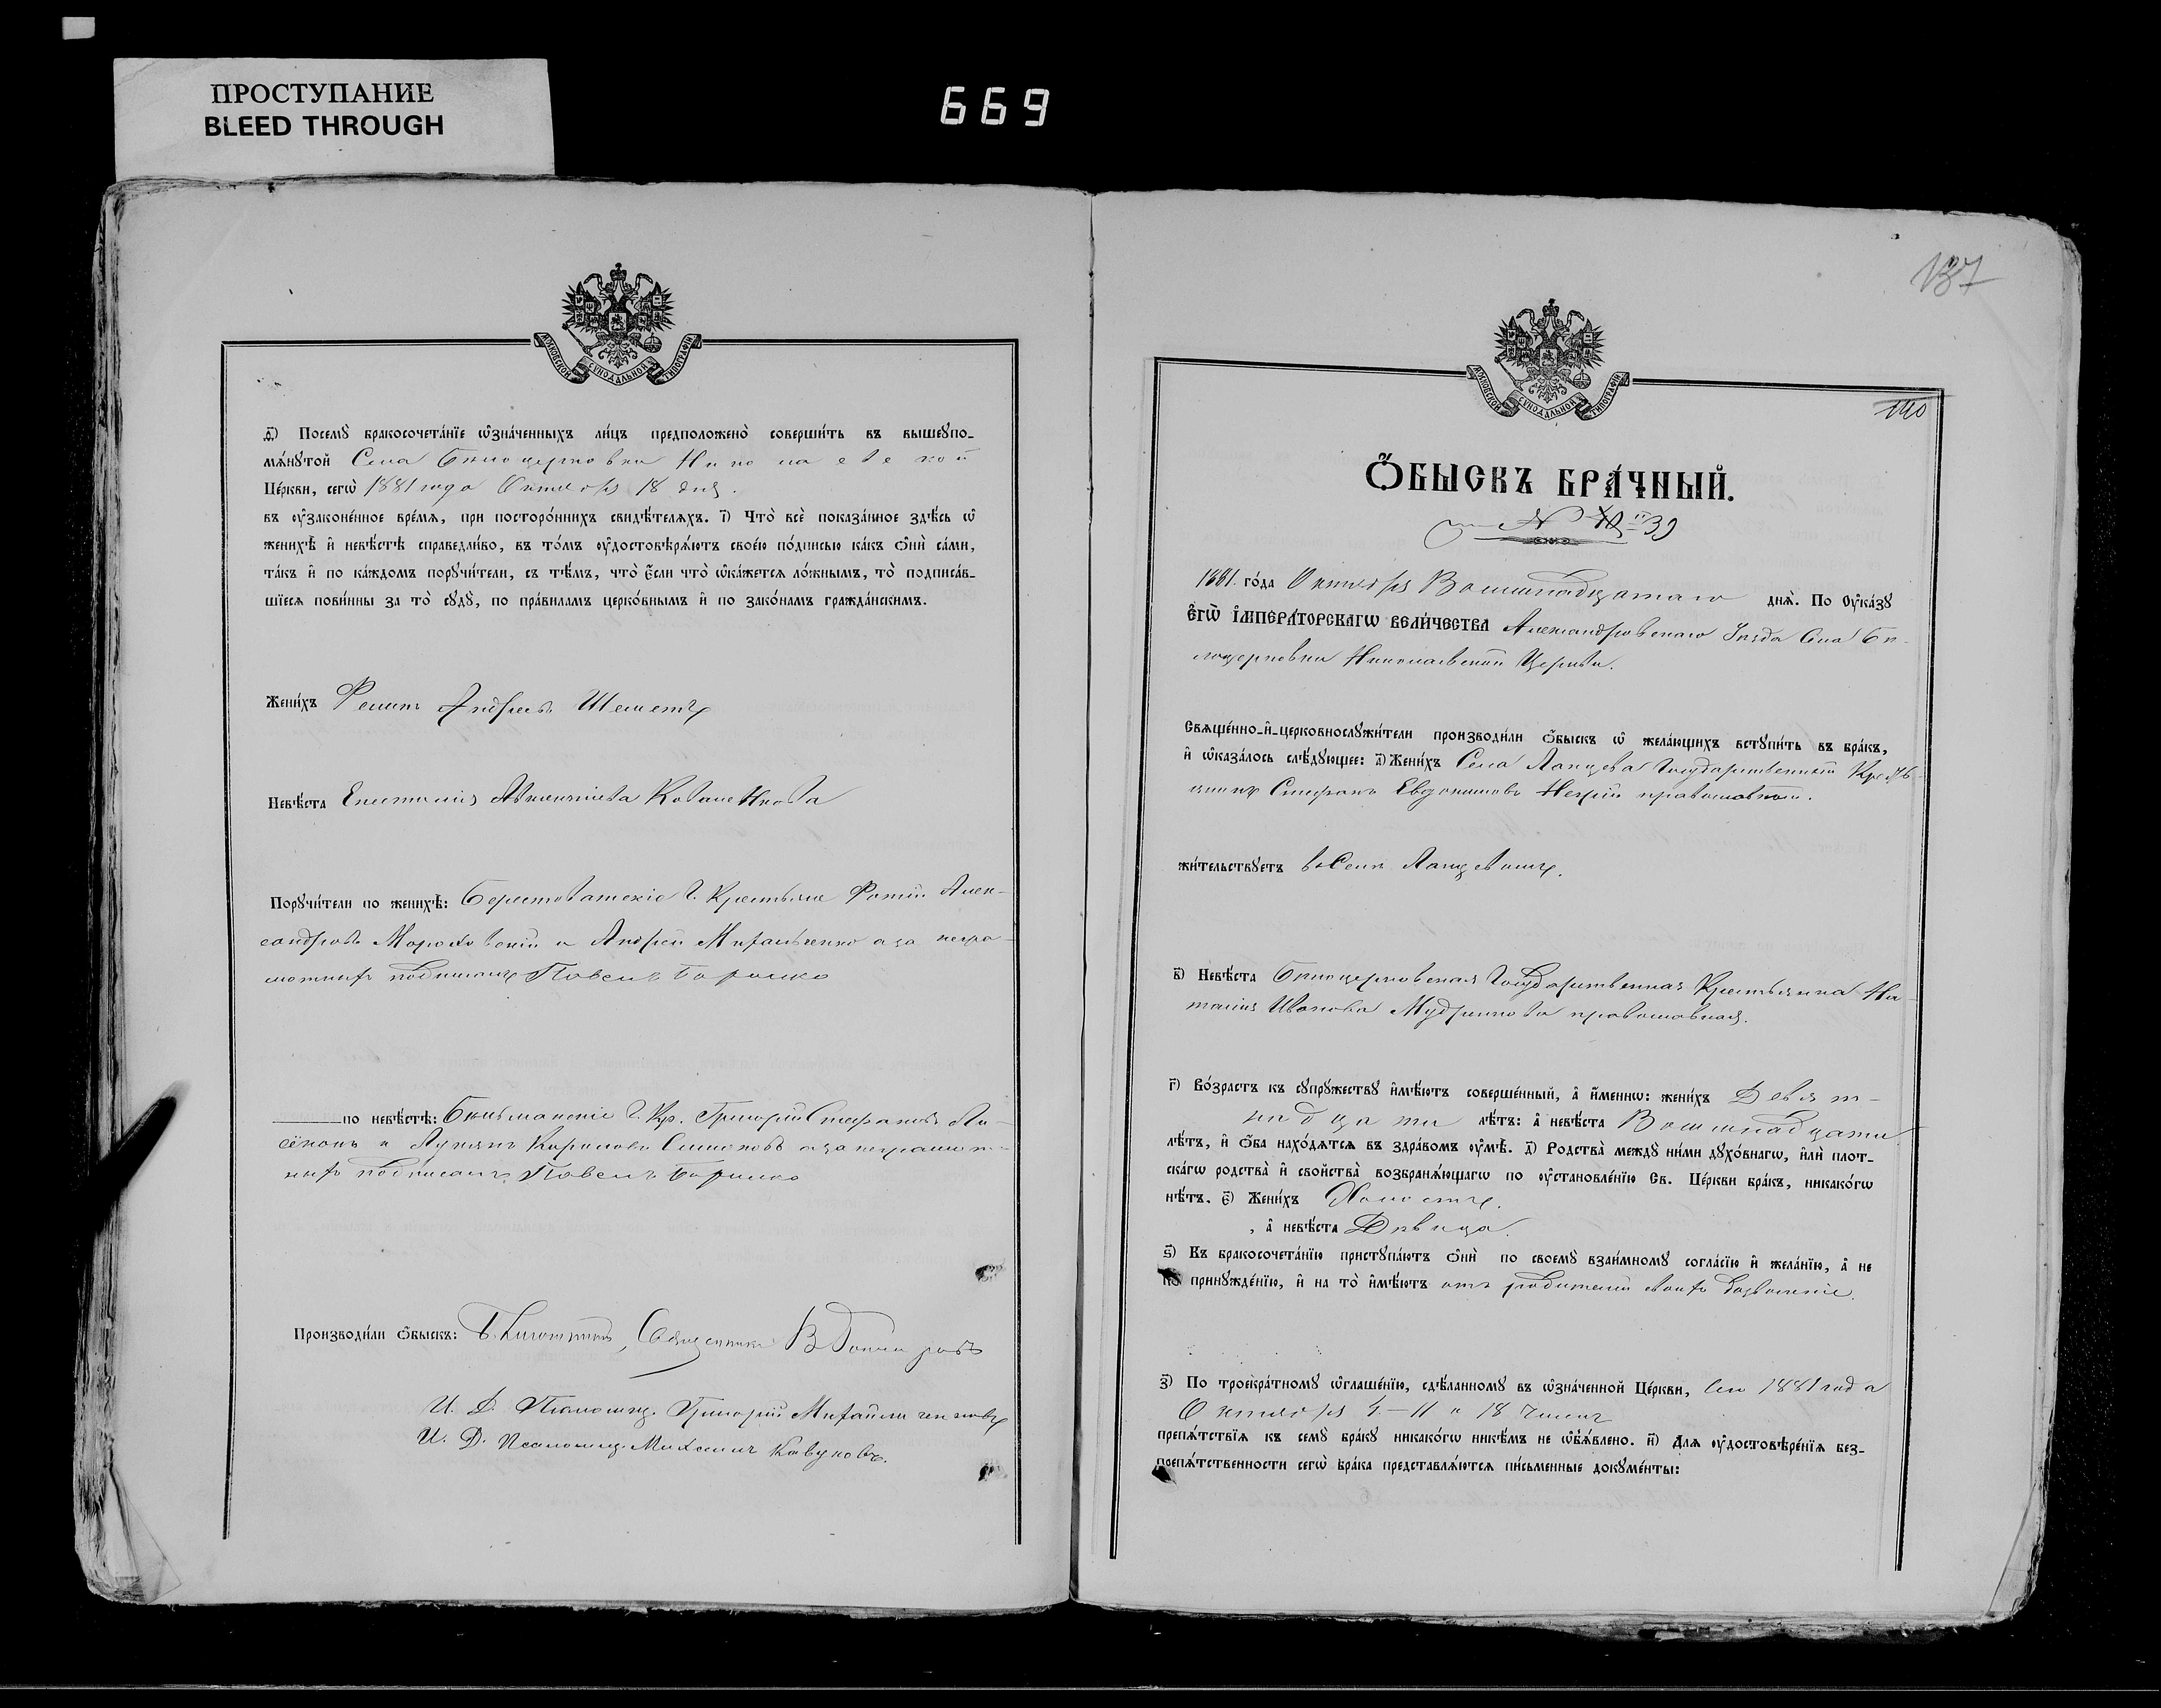 ПРОСТУПАНИЕ
BLEED THROUGH
669
МОСКОВСКОЙ СѴНОДАЛЬНОЙ ТИПОГРАФІИ
ѳ҃) Посемꙋ̀ бракосочета́нїе ѡ҆зна́ченныхъ ли́цъ предположено̀ соверши́ть въ вышеꙋпо-
мѧ́нꙋтой Села Бѣлоцерковки Николаевской
Це́ркви, сегѡ̀ 1881 года Октября 18 дня.
въ ᲂу҆законе́нное вре́мѧ, при посторо́ннихъ свидѣ́телѧхъ. і҃) Что̀ всѐ показа́нное здѣ́сь ѡ҆
женихѣ̀ и҆ невѣ́стѣ справедли́во, въ то́мъ ᲂу҆достовѣрѧ́ютъ свое́ю по́дписью ка́къ ѻ҆нѝ са́ми,
та́къ и҆ по ка́ждомъ порꙋчи́тели, съ тѣ́мъ, что̀ є҆́сли что̀ ѡ҆ка́жетсѧ ло́жнымъ, то̀ подписа́в-
шїесѧ пови́нны за то̀ сꙋдꙋ̀, по пра́виламъ церко́внымъ и҆ по зако́намъ гражда́нскимъ.
Жени́хъ Филипъ Андреевъ Шеметъ
Невѣ́ста Евстимія Коваленкова
Порꙋчи́тели по женихѣ̀: Берестоватскіе Г. Крестьяне Фотій Алек-
сандровъ Мороховскій и Андрей Михальченко а за негра-
мотныхъ подписалъ Павелъ Боришко
по невѣ́стѣ: Бѣльманскіе Г. Кр. Григорій Стефановъ
и Лукьянъ а за неграмот-
ныхъ подписалъ Павелъ Боришко
Производи́ли ѻ҆́быскъ: Священникъ В Гончаровъ
И. Д. Псаломщ. Григорій
И. Д. Псаломщ. Михаилъ Кавуновъ.
137
МОСКОВСКОЙ СѴНОДАЛЬНОЙ ТИПОГРАФІИ
140
Ѻ҆́БЫСКЪ БРА́ЧНЫЙ.
№ 39
1881. го́да Октября Восемнадцатаго днѧ̀. По Оу҆ка́зꙋ
Є҆гѡ̀ І҆мпера́торскагѡ вели́чества Александровскаго Уѣзда Села Бѣ-
лоцерковки Николаевской Церкви.
Свѧще́нно-и҆-церковнослꙋжи́тели производи́ли ѻ҆́быскъ ѡ҆ жела́ющихъ встꙋпи́ть въ бра́къ,
и҆ ѡ҆каза́лось слѣ́дꙋющее: а҃) Жени́хъ Села Ланцева Государственный Кресть-
янинъ Стефанъ Евдокимовъ православный.
жи́тельствꙋетъ въ Селѣ Ланцевомъ.
в҃) Невѣ́ста Бѣлоцерковская Государственная Крестьянка На-
талія Иванова Мудренкова православная.
г҃) Во́зрастъ къ сꙋпрꙋ́жествꙋ и҆мѣ́ютъ соверше́нный, а҆ и҆́меннѡ: жени́хъ Девят-
надцати лѣ́тъ: а҆ невѣ́ста Восемнадцати
лѣ́тъ, и҆ ѻ҆́ба нахо́дѧтсѧ въ здра́вомъ ᲂу҆мѣ̀. д҃) Родства̀ междꙋ̀ ни́ми дꙋхо́внагѡ, и҆лѝ плот-
ска́гѡ родства̀ и҆ сво́йства возбранѧ́ющагѡ по ᲂу҆становле́нїю Св. Це́ркви бра́къ, никако́гѡ
нѣ́тъ. є҃) Жени́хъ Холостъ.
, а҆ невѣ́ста Дѣвица.
ѕ҃) Къ бракосочета́нїю пристꙋпа́ютъ ѻ҆нѝ по своемꙋ̀ взаи́мномꙋ согла́сїю и҆ жела́нїю, а҆ не
по принꙋжде́нїю, и҆ на то̀ и҆мѣ́ютъ отъ родителей своихъ дозволеніе.
з҃) По троекра́тномꙋ ѡ҆глаше́нїю, сдѣ́ланномꙋ въ ѡ҆зна́ченной Це́ркви, сего 1881 года
Октября 4.-11 и 18 чиселъ
препѧ́тствїѧ къ семꙋ̀ бра́кꙋ никако́гѡ никѣ́мъ не ѡ҆б̾ѧ́влено. и҃) Длѧ ᲂу҆достовѣре́нїѧ без-
препѧ́тственности сегѡ̀ бра́ка представлѧ́ютсѧ пи́сьменные докꙋме́нты: